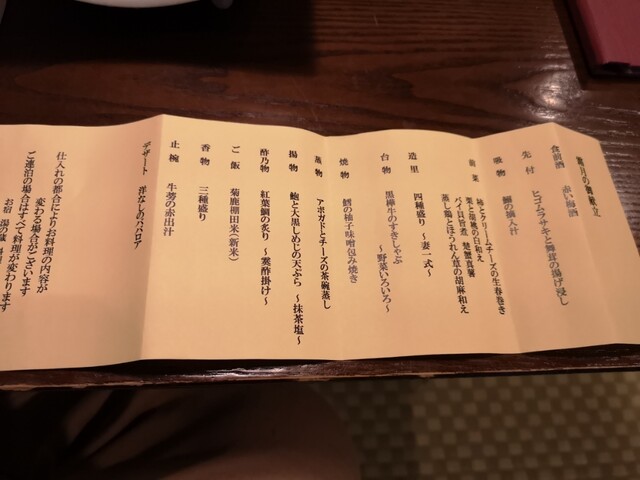 霜月の御献立
食前酒 赤い梅酒
先付 ヒゴムラサキと舞茸の揚げ浸し
吸物 鰯の摘入汁
前菜 柿とクリームチーズの生春巻き
栗と胡桃の白和え
バイ貝旨煮 楚蟹真薯
蒸し鶏とほうれん草の胡麻和え
造里 四種盛り ～妻一式～
台物 黒樺牛のすきしゃぶ
～野菜いろいろ～
焼物 鱈の柚子味噌包み焼き
蒸物 アボガドとチーズの茶碗蒸し
揚物 鮑と大黒しめじの天ぷら ～抹茶塩～
酢乃物 紅葉鯛の炙り ～霙酢掛け～
ご飯 菊鹿棚田米(新米)
香物 三種盛り
止椀 牛蒡の赤出汁
デザート 洋なしのババロア
仕入れの都合によりお料理の内容が
変わる場合がございます
ご連泊の場合はすべて料理が変わります
お宿 湯の蔵